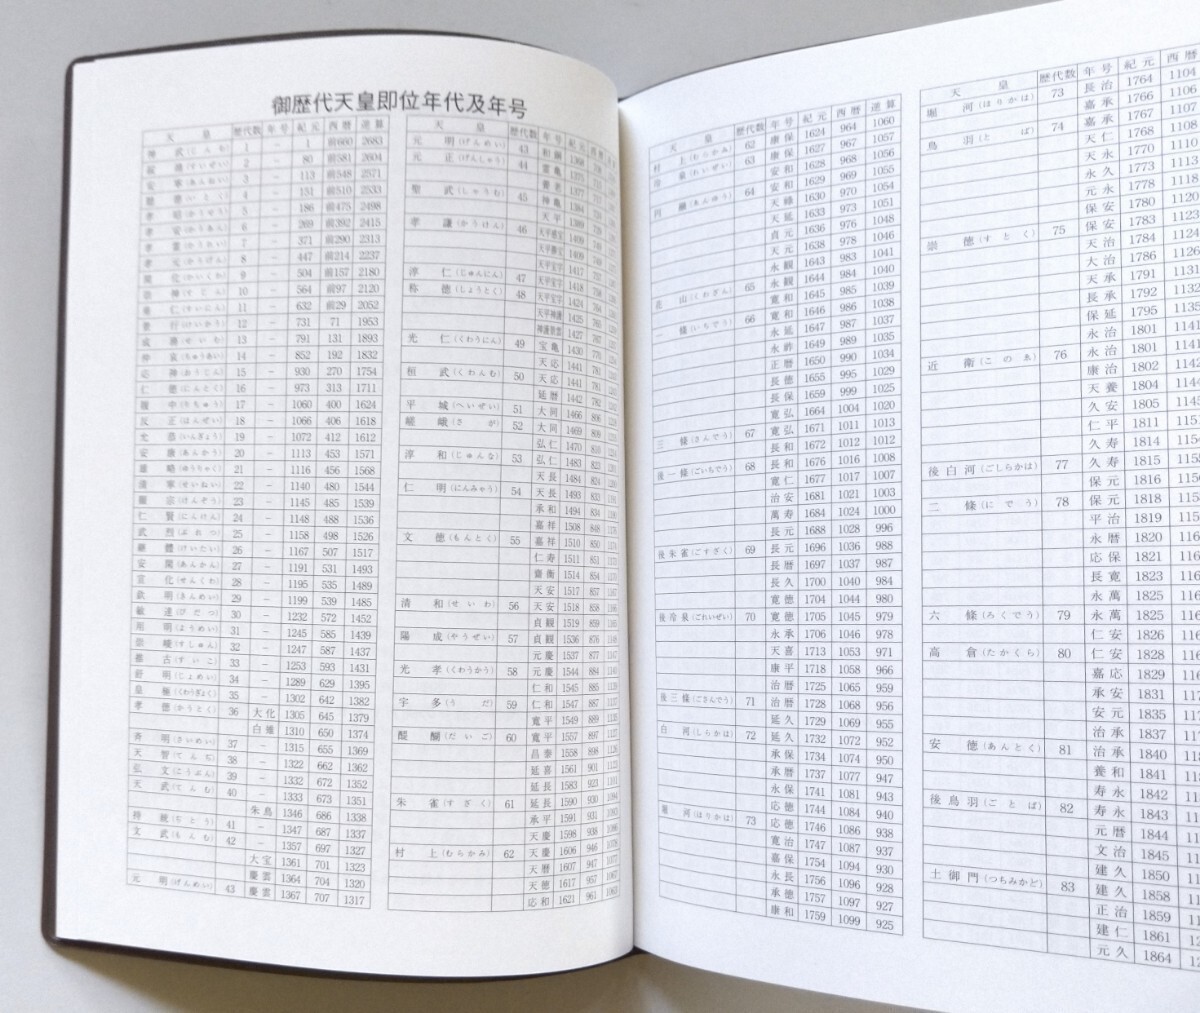 御歴代天皇即位年代及年号
天 皇 歴代数 年号 紀元 西暦 逆算
神 武(じんむ) 1 − 1 前660 2683
綏 靖(すいぜい) 2 − 80 前581 2604
安 寧(あんねい) 3 − 113 前548 2571
懿 徳(いとく) 4 − 151 前510 2533
5 − 186 前475 2498
孝 安(かうあん) 6 − 269 前392 2415
孝 霊(かうれい) 7 − 371 前290 2313
孝 元(かうげん) 8 − 447 前214 2237
開 化(かいくわ) 9 − 504 前157 2180
崇 神(すじん) 10 − 564 前97 2120
垂 仁(すいにん) 11 − 632 前29 2052
景 行(けいかう) 12 − 731 71 1953
成 務(せいむ) 13 − 791 131 1893
仲 哀(ちゅうあい) 14 − 852 192 1832
応 神(おうじん) 15 − 930 270 1754
仁 徳(にんとく) 16 − 973 313 1711
履 中(りちゅう) 17 − 1060 400 1624
反 正(はんぜい) 18 − 1066 406 1618
允 恭(いんぎょう) 19 − 1072 412 1612
安 康(あんかう) 20 − 1113 453 1571
雄 略(ゆうりゃく) 21 − 1116 456 1568
清 寧(せいねい) 22 − 1140 480 1544
顕 宗(けんぞう) 23 − 1145 485 1539
仁 賢(にんけん) 24 − 1148 488 1536
武 烈(ぶれつ) 25 − 1158 498 1526
継 體(けいたい) 26 − 1167 507 1517
安 閑(あんかん) 27 − 1191 531 1493
宣 化(せんくわ) 28 − 1195 535 1489
欽 明(きんめい) 29 − 1199 539 1485
敏 達(びだつ) 30 − 1232 572 1452
用 明(ようめい) 31 − 1245 585 1439
崇 峻(すしゅん) 32 − 1247 587 1437
推 古(すいこ) 33 − 1253 593 1431
舒 明(じょめい) 34 − 1289 629 1395
皇 極(くわうぎよく) 35 − 1302 642 1382
孝 徳(かうとく) 36 大化 1305 645 1379
白雉 1310 650 1374
斉 明(さいめい) 37 − 1315 655 1369
天 智(てんぢ) 38 − 1322 662 1362
弘 文(こうぶん) 39 − 1332 672 1352
天 武(てんむ) 40 − 1333 673 1351
朱鳥 1346 686 1338
持 統(ぢとう) 41 − 1347 687 1337
文 武(もんむ) 42 − 1357 697 1327
大宝 1361 701 1323
慶雲 1364 704 1320
元 明(げんめい) 43 慶雲 1367 707 1317
天 皇 歴代数 年号 紀元 西暦
元 明(げんめい) 43 和銅 1368
元 正(げんしゃう) 44 霊亀
養老 1377
聖 武(しゃうむ) 45 神亀 1384
天平 1389
孝 謙(かうけん) 46 天平感宝 1409
天平勝宝 1409
天平宝字 1417
淳 仁(じゅんにん) 47 天平宝字 1418
称 徳(しょうとく) 48 天平宝字 1424
天平神護 1425
神護景雲 1427
光 仁(くわうにん) 49 宝亀 1430 770
天応 1441 781
桓 武(くわんむ) 50 天応 1441 781
延暦 1442 782
平 城(へいぜい) 51 大同 1466 806
嵯 峨(さが) 52 大同 1469 809
弘仁 1470 810
淳 和(じゅんな) 53 弘仁 1483 823
天長 1484 824
仁 明(にんみゃう) 54 天長 1493
承和 1494 834
嘉祥 1508 848
文 徳(もんとく) 55 嘉祥 1510 850
仁寿 1511 851
斎衡 1514 854
天安 1517 857
清 和(せいわ) 56 天安 1518 858
貞観 1519 859
陽 成(やうぜい) 57 貞観 1536 876
元慶 1537 877
光 孝(くわうかう) 58 元慶 1544 884
仁和 1545 885
宇 多(うだ) 59 仁和 1547 887
寛平 1549 889
醍 醐(だいご) 60 寛平 1557 897
昌泰 1558 898
延喜 1561 901
延長 1583 923
朱 雀(すざく) 61 延長 1590 930
承平 1591 931
天慶 1598 938
村 上(むらかみ) 62 天慶 1606 946
天暦 1607 947
天徳 1617 957
応和 1621 961 1063
天 皇 歴代数 年号 紀元 西暦 逆算
村 上(むらかみ) 62 康保 1624 964 1060
冷 泉(れいぜい) 63 康保 1627 967 1057
安和 1628 968 1056
円 融(ゑんゆう) 64 安和 1629 969 1055
天禄 1630 970 1054
天延 1633 973 1051
貞元 1636 976 1048
天元 1638 978 1046
永観 1643 983 1041
花 山(くわざん) 65 永観 1644 984 1040
寛和 1645 985 1039
一 條(いちでう) 66 寛和 1646 986 1038
永延 1647 987 1037
永祚 1649 989 1035
正暦 1650 990 1034
長徳 1655 995 1029
長保 1659 999 1025
寛弘 1664 1004 1020
三 條(さんでう) 67 寛弘 1671 1011 1013
長和 1672 1012 1012
後一條(ごいちでう) 68 長和 1676 1016 1008
寛仁 1677 1017 1007
治安 1681 1021 1003
萬寿 1684 1024 1000
長元 1688 1028 996
後朱雀(ごすざく) 69 長元 1696 1036 988
長暦 1697 1037 987
長久 1700 1040 984
寛徳 1704 1044 980
後冷泉(ごれいぜい) 70 寛徳 1705 1045 979
永承 1706 1046 978
天喜 1713 1053 971
康平 1718 1058 966
治暦 1725 1065 959
後三條(ごさんでう) 71 治暦 1728 1068 956
延久 1729 1069 955
白 河(しらかは) 72 延久 1732 1072 952
承保 1734 1074 950
承暦 1737 1077 947
永保 1741 1081 943
応徳 1744 1084 940
堀 河(ほりかは) 73 応徳 1746 1086 938
寛治 1747 1087 937
嘉保 1754 1094 930
永長 1756 1096 928
承徳 1757 1097 927
康和 1759 1099 925
天 皇 歴代数 年号 紀元 西暦
堀 河(ほりかは) 73 長治 1764 1104
嘉承 1766 1106
鳥 羽(とば) 74 嘉承 1767 1107
天仁 1768 1108
天永 1770 1110
永久 1773 1113
元永 1778 1118
保安 1780 1120
崇 徳(すとく) 75 保安 1783 1123
天治 1784 1124
大治 1786 1126
天承 1791 1131
長承 1792 1132
保延 1795 1135
永治 1801 1141
近 衛(このゑ) 76 永治 1801 1141
康治 1802 1142
天養 1804 1144
久安 1805 1145
仁平 1811 115
久寿 1814 115
後白河(ごしらかは) 77 久寿 1815 115
保元 1816 115
二 條(にでう) 78 保元 1818 115
平治 1819 115
永暦 1820 11
応保 1821 11
長寛 1823 11
永萬 1825 11
六 條(ろくでう) 79 永萬 1825 11
仁安 1826 11
高 倉(たかくら) 80 仁安 1828 11
嘉応 1829 11
承安 1831 11
安元 1835 11
治承 1837 11
安 徳(あんとく) 81 治承 1840 11
養和 1841 11
寿永 1842 11
後鳥羽(ごとば) 82 寿永 1843 11
元暦 1844 11
文治 1845 11
建久 1850 11
土御門(つちみかど) 83 建久 1858 11
正治 1859 11
建仁 1861 12
元久 1864 12